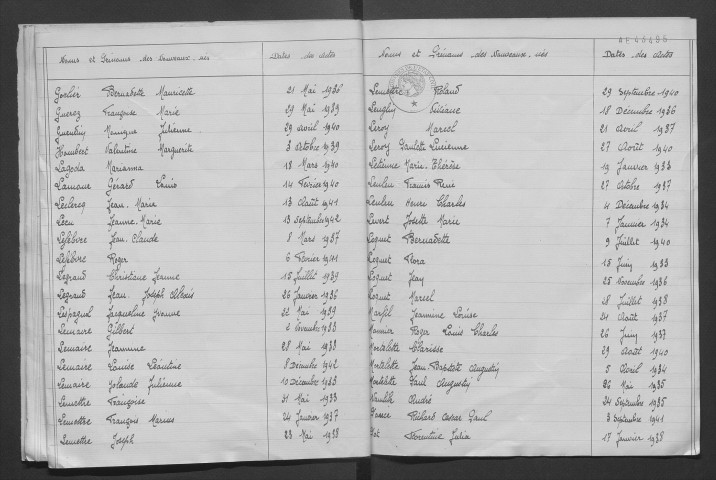 Noms et Prénoms des Nouveaux-nés Dates des actes
Gerlier Bernadette Mauricette 21 Mai 1936
Gueroz Françoise Marie 29 Mai 1939
Quentin Monique Julienne 29 Avril 1940
Humbert Valentine Marguerite 3 Octobre 1939
Lagoda Marianna 18 Mars 1940
Lamour Gérard Louis 14 Février 1940
Leclercq Jean-Marie 13 Août 1941
Lecu Jeanne-Marie 13 Septembre 1942
Lefebvre Jean-Claude 8 Mars 1937
Lefebvre Roger 6 Février 1941
Legrand Christiane Jeanne 15 Juillet 1939
Legrand Jean-Joseph Alexis 26 Janvier 1936
Lespagnol Jacqueline Yvonne 22 Mai 1939
Lemaire Gilbert 2 Novembre 1933
Lemaire Jeannine 28 Mai 1938
Lemaire Louise Léontine 8 Décembre 1942
Lemaire Yolande Julienne 10 Décembre 1933
Lemettre Françoise 31 Mai 1933
Lemettre François Marius 24 Janvier 1937
Lemettre Joseph 23 Mai 1938
Noms et Prénoms des Nouveaux-nés Dates des Actes
Lemettre Roland 29 Septembre 1940
Lenglin Liliane 18 Décembre 1936
Leroy Marcel 21 Avril 1937
Leroy Lucienne 27 Août 1940
Letienne Marie-Thérèse 19 Janvier 1933
Leuleu Francis René 27 Octobre 1937
Leuleu Henri Charles 4 Décembre 1934
Levert Josette Marie 7 Janvier 1934
Loquet Bernadette 9 Juillet 1940
Loquet Flora 15 Juin 1933
Loquet Jean 25 Novembre 1936
Loquet Marcel 28 Juillet 1938
Jeannine Louise 24 Août 1937
Monnier Roger Louis Charles 26 Juin 1937
Mortelette Clarisse 29 Août 1940
Mortelette Jean-Baptiste Augustin 5 Avril 1934
Mortelette Paul Augustin 26 Mai 1935
André 24 Septembre 1935
Richard César Paul 3 Septembre 1941
Florentine Julia 17 Janvier 1938